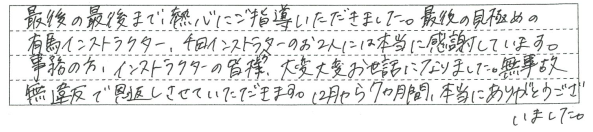 最後の最後まで熱心にご指導いただきました。最後の見極めの
有馬インストラクター、千田インストラクターのお2人には本当に感謝しています。
事務の方、インストラクターの皆様、大変大変お世話になりました。無事故
無違反で恩返しさせていただきます。12月から7ヶ月間、本当にありがとうござ
いました。